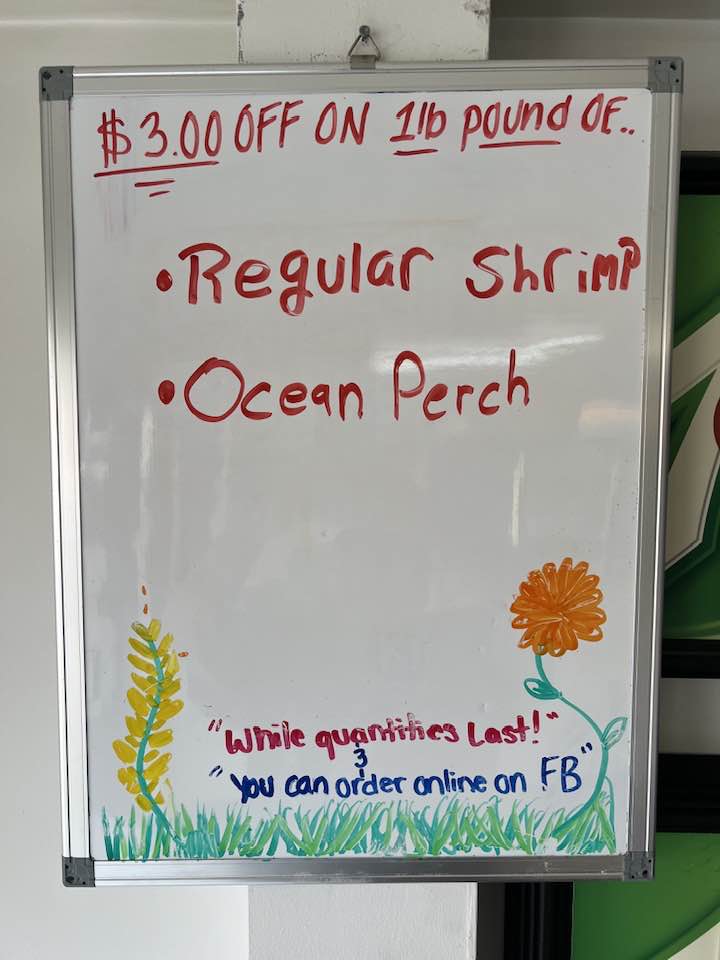 $3.00 OFF ON 1lb pound OF..
• Regular Shrimp
• Ocean Perch
"While quantities Last!"
"You can order online on FB"